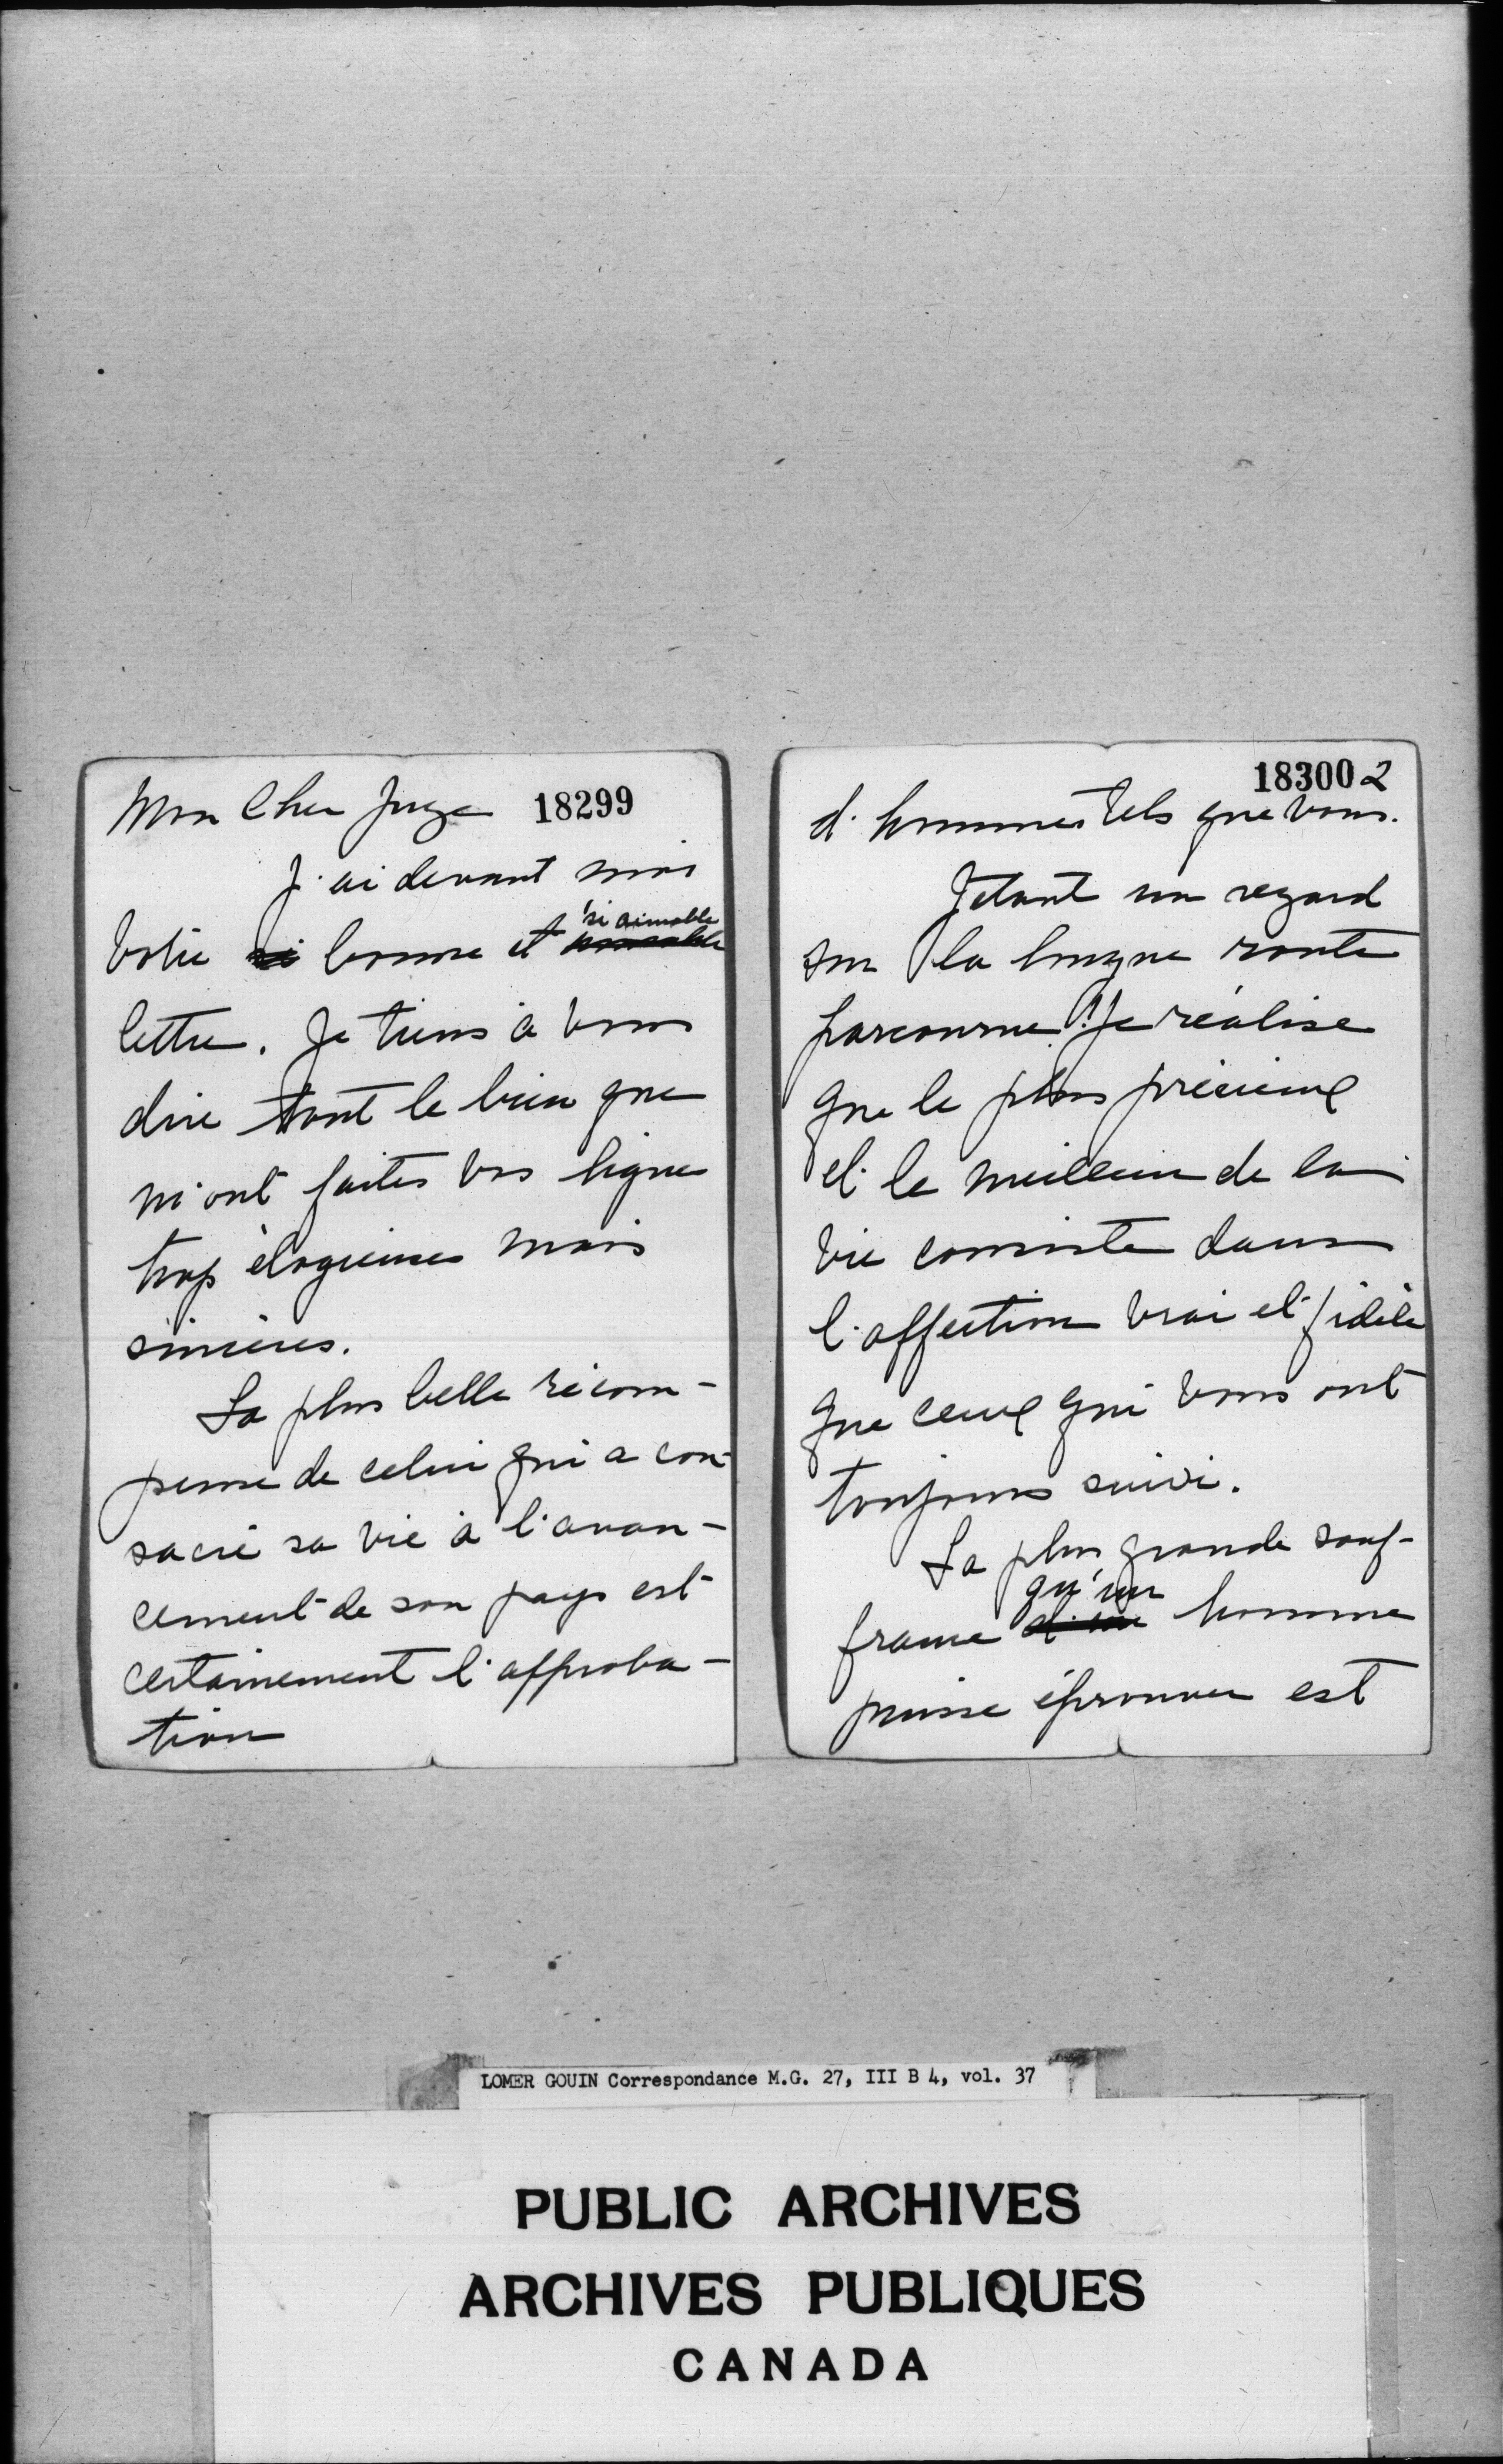 Mon Cher Juge 18299
J'ai devant moi
votre si bonne et si aimable
lettre. Je tiens à vous
dire tout le bien que
m'ont faites vos lignes
trop élogieuses mais
sincères.
La plus belle récom-
pense de celui qui a con-
sacré sa vie à l'avan-
cement de son pays est
certainement l'approba-
tion
18300 2
d'hommes tels que vous.
Jetant un regard
sur la longue route
parcourue! Je réalise
que le plus précieux
et le meilleur de la
vie consiste dans
l'affection vrai et fidèle
que ceux qui vous ont
toujours suivi.
La plus grande souf-
france qu'un homme
puisse éprouver est
LOMER GOUIN Correspondance M.G. 27, III B 4, vol. 37
PUBLIC ARCHIVES
ARCHIVES PUBLIQUES
CANADA